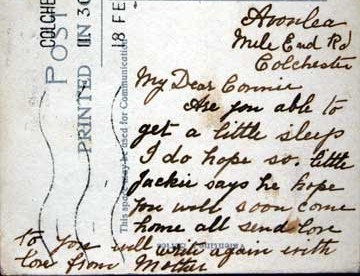 COLCHE
18 FE
POST
PRINTED IN
This space may be used for Communication
Avonlea
Mile End Rd
Colchester
My Dear Connie
Are you able to
get a little sleep
I do hope so. little
Jackie says he hope
you will soon come
home all send love
to you will write again with
love from Mother